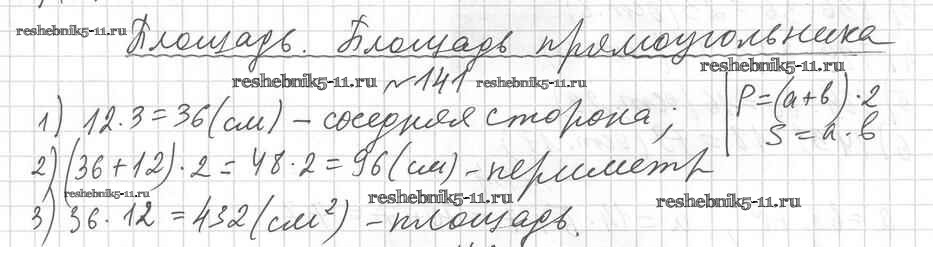 reshebnik5-11.ru
Площадь. Площадь прямоугольника
reshebnik5-11.ru №141 reshebnik5-11.ru reshebnik5-11.ru
1) 12·3=36(см) – соседняя сторона;
P=(a+b)·2
S=a·b
2) (36+12)·2=48·2=96(см) – периметр
reshebnik5-11.ru reshebnik5-11.ru reshebnik5-11.ru
3) 36·12=432(см²) – площадь.
reshebnik5-11.ru